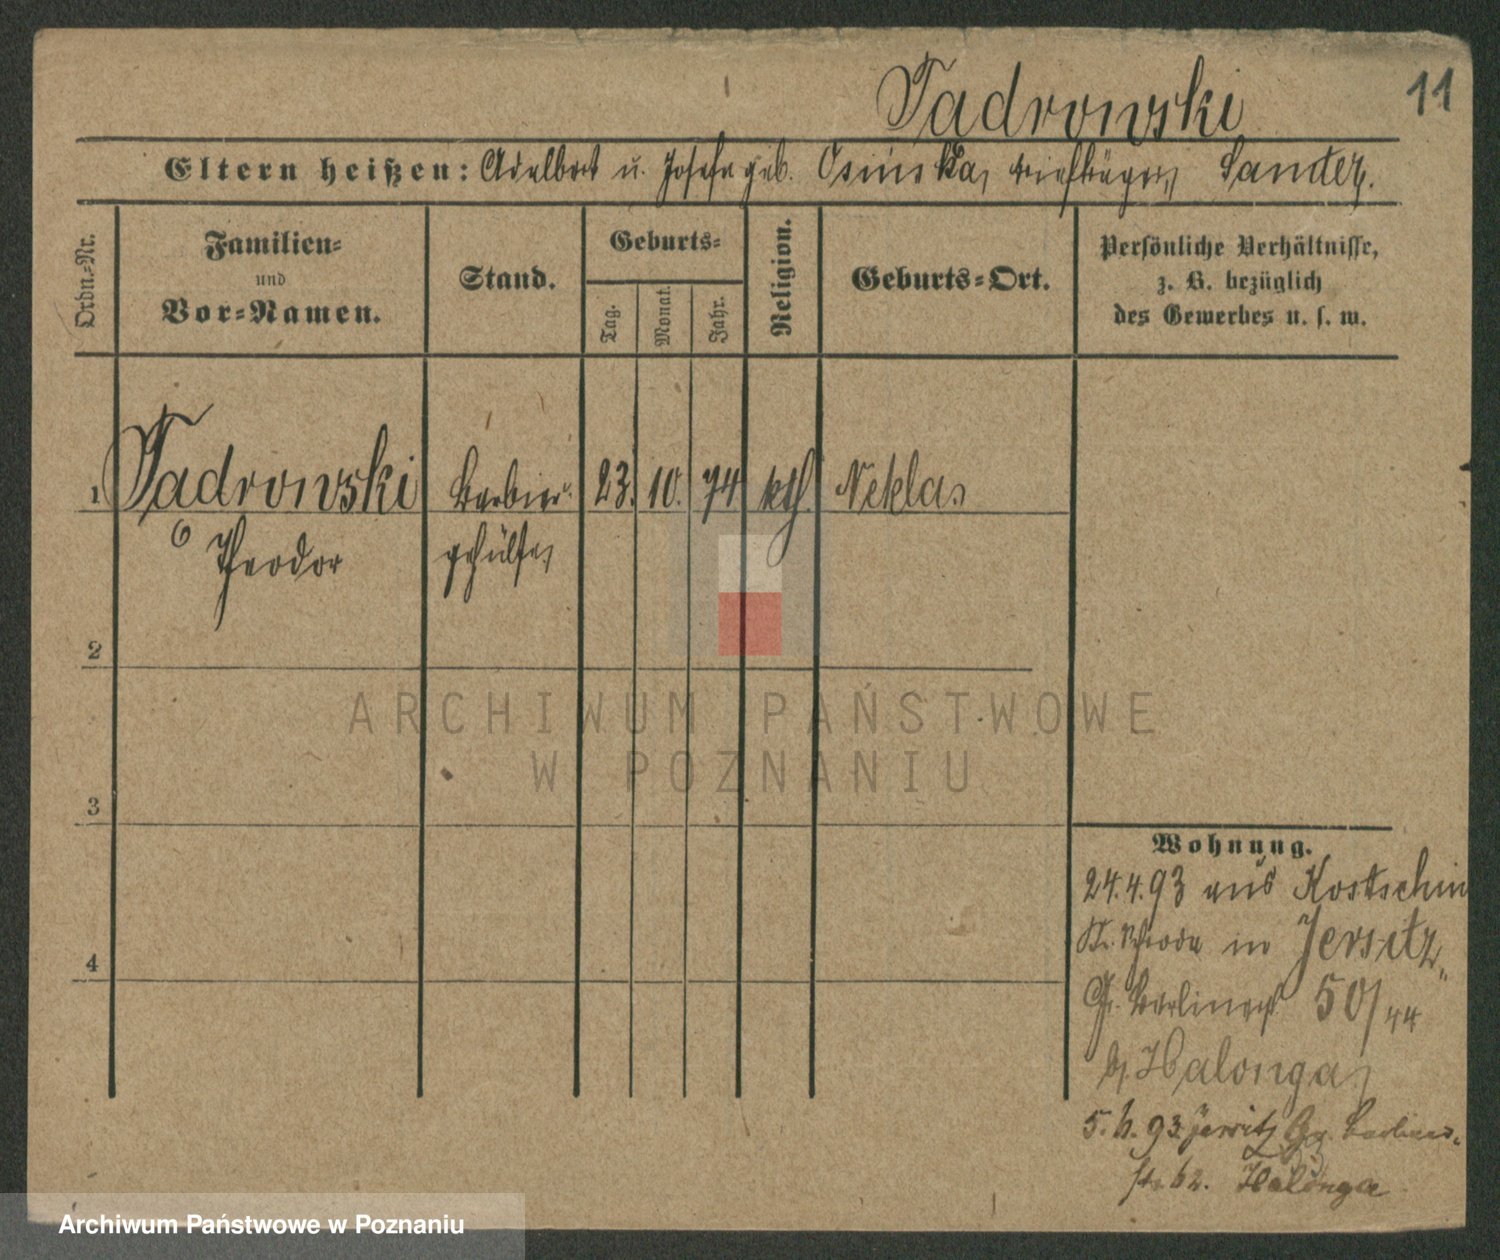 11
Tadrowski
Eltern heißen: Adalbert u. Josefa geb. Osinska,
Ordn.=Nr.
Familien=
und
Vor=Namen.
Stand.
Geburts=
Tag.
Monat.
Jahr.
Religion.
Geburts=Ort.
Persönliche Verhältnisse,
z. B. bezüglich
des Gewerbes u. s. w.
1 Tadrowski Barbier 23. 10. 74 kth. Neklas
Theodor gehülfe
2
3
4
Wohnung.
24.4.93 aus Kostschin
Kr. Schroda in Jersitz,
Gr. Berlinerst 50/44
b/ Halonga
5. 6. 93. Jersitz Gr. Berliner-
str. 62. Halonga
ARCHIWUM PAŃSTWOWE
W POZNANIU
Archiwum Państwowe w Poznaniu